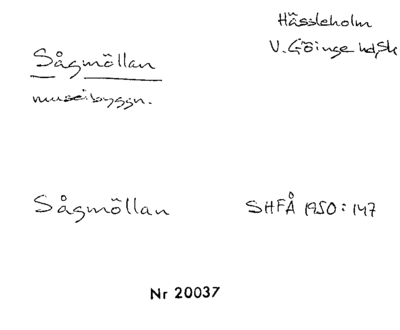 Hässleholm
V. Göinge hd, Sk
Sågmöllan
museibyggn.
Sågmöllan
SHFÅ 1950:147
Nr 20037